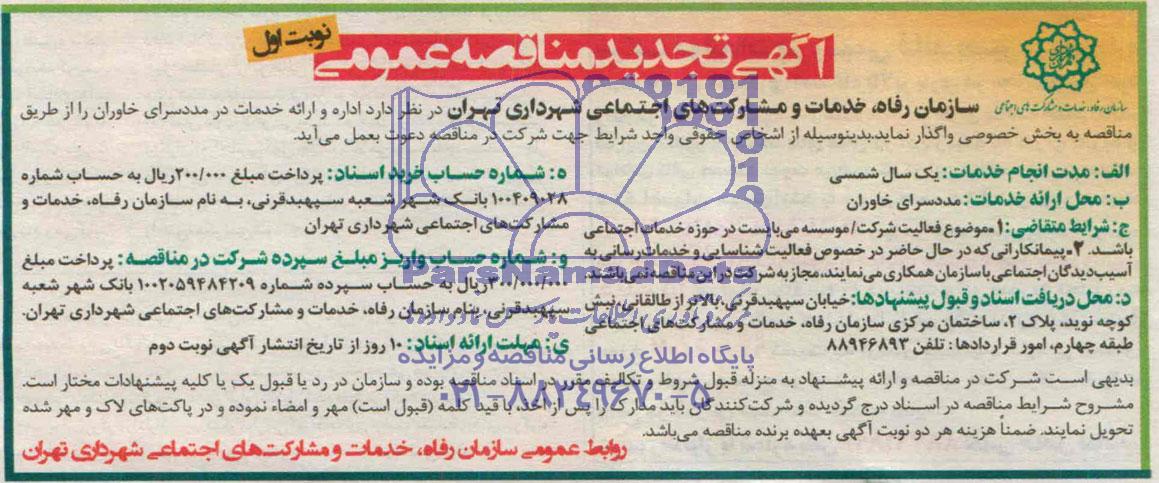 نوبت اول
آگهی تجدید مناقصه عمومی
سازمان رفاه، خدمات و مشارکت‌های اجتماعی
سازمان رفاه، خدمات و مشارکت‌های اجتماعی شهرداری تهران در نظر دارد اداره و ارائه خدمات در مددسرای خاوران را از طریق
مناقصه به بخش خصوصی واگذار نماید.بدینوسیله از اشخاص حقوقی واجد شرایط جهت شرکت در مناقصه دعوت بعمل می‌آید.
الف: مدت انجام خدمات: یک سال شمسی
ب: محل ارائه خدمات: مددسرای خاوران
ج: شرایط متقاضی: ۱ـ موضوع فعالیت شرکت/ موسسه می‌بایست در حوزه خدمات اجتماعی
باشد. ۲ـ پیمانکارانی که در حال حاضر در خصوص فعالیت شناسایی و خدمات رسانی به
آسیب‌دیدگان اجتماعی با سازمان همکاری می‌نمایند، مجاز به شرکت در این مناقصه نمی‌باشند.
د: محل دریافت اسناد و قبول پیشنهادها: خیابان سپهبدقرنی، بالاتر از طالقانی، نبش
کوچه نوید، پلاک ۲، ساختمان مرکزی سازمان رفاه، خدمات و مشارکت‌های اجتماعی
طبقه چهارم، امور قراردادها: تلفن ۸۸۹۴۶۸۹۳
ه: شماره حساب خرید اسناد: پرداخت مبلغ ۲۰۰/۰۰۰ریال به حساب شماره
۱۰۰۴۰۹۰۲۸ بانک شهر شعبه سپهبدقرنی، به نام سازمان رفاه، خدمات و
مشارکت‌های اجتماعی شهرداری تهران
و: شماره حساب واریز مبلغ سپرده شرکت در مناقصه: پرداخت مبلغ
۳۰۰/۰۰۰/۰۰۰ریال به حساب سپرده شماره ۱۰۰۲۰۵۹۴۸۴۲۰۹ بانک شهر شعبه
سپهبدقرنی، بنام سازمان رفاه، خدمات و مشارکت‌های اجتماعی شهرداری تهران.
ی: مهلت ارائه اسناد: ۱۰ روز از تاریخ انتشار آگهی نوبت دوم
بدیهی است شرکت در مناقصه و ارائه پیشنهاد به منزله قبول شروط و تکالیف مقرر در اسناد مناقصه بوده و سازمان در رد یا قبول یک یا کلیه پیشنهادات مختار است.
مشروح شرایط مناقصه در اسناد درج گردیده و شرکت‌کنندگان باید مدارک را پس از اخذ، با قید کلمه (قبول است) مهر و امضاء نموده و در پاکت‌های لاک و مهر شده
تحویل نمایند. ضمناً هزینه هر دو نوبت آگهی بعهده برنده مناقصه می‌باشد.
روابط عمومی سازمان رفاه، خدمات و مشارکت‌های اجتماعی شهرداری تهران
ParsNamadData
پایگاه اطلاع رسانی مناقصه و مزایده
۰۲۱-۸۸۳۴۹۶۷۰-۵